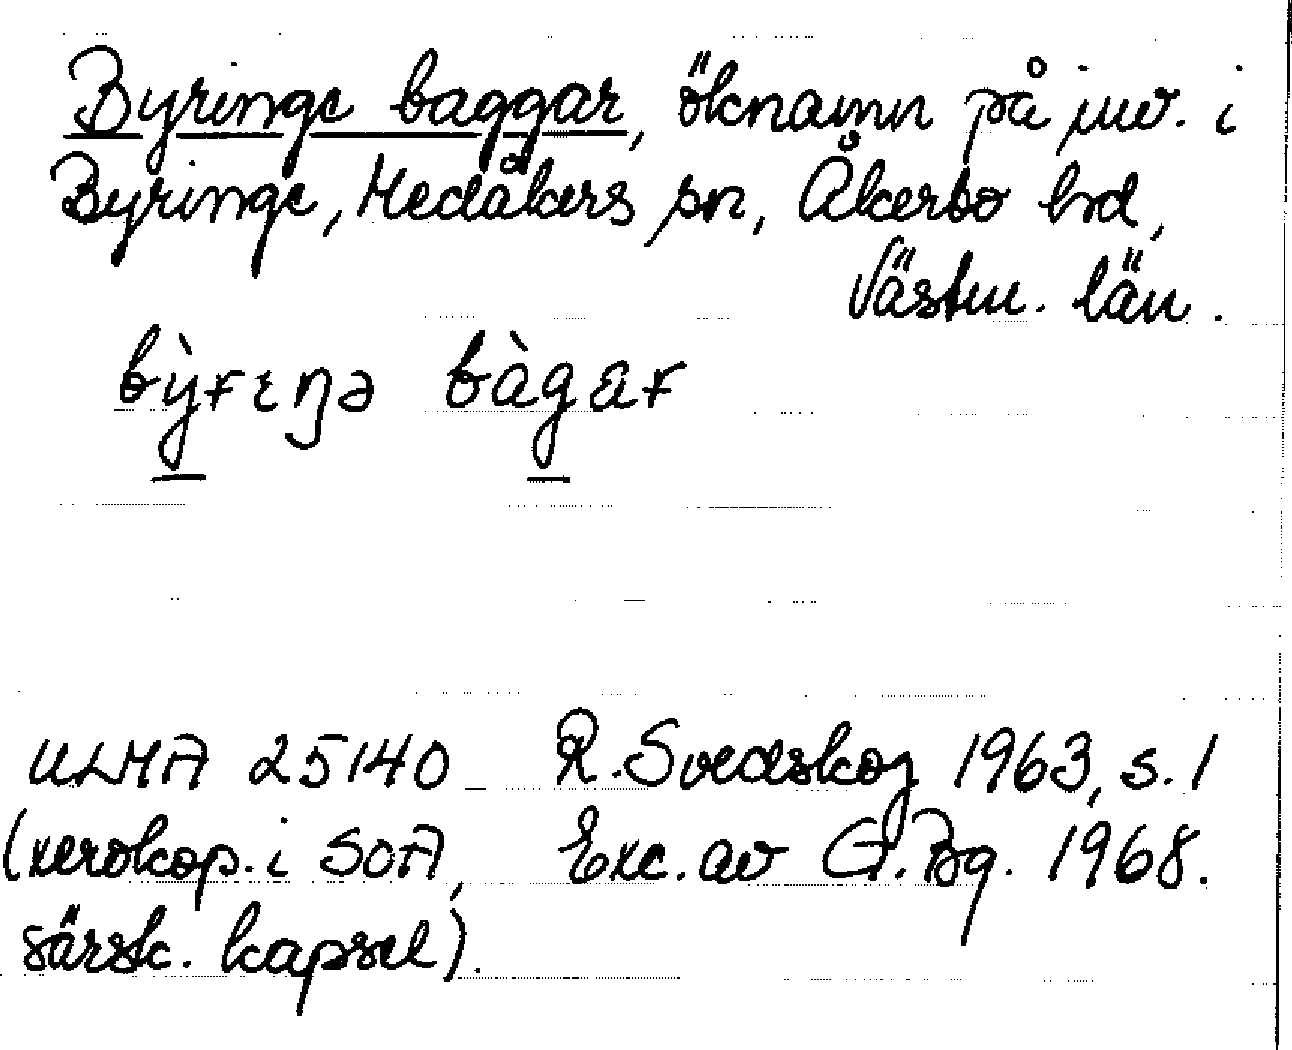 Byringe baggar, öknamn på inv. i
Byringe, Medåkers sn, Åkerbo hd,
Västm. län.
bỳrɩŋə bàgar
ULMA 25140 R. Svedskog 1963, s. 1
(xerokop. i SOA, Exc. av G. Bg. 1968.
särsk. kapsel).